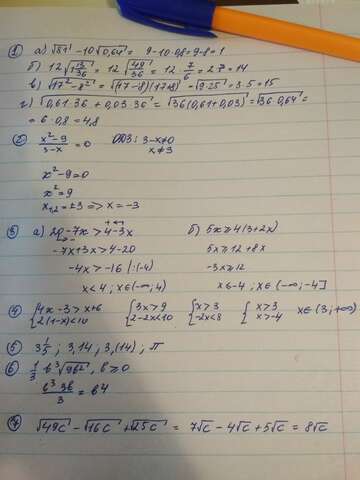 ① а) √81 - 10√0,64 = 9-10·0,8=9-8=1
б) 12√1 13/36 = 12√49/36 = 12·7/6 = 2·7=14
в) √17²-8² = √(17-8)(17+8) = √9·25 = 3·5=15
г) √0,61·36 + 0,03·36 = √36(0,61+0,03) = √36·0,64 =
= 6·0,8 = 4,8
② x²-9/3-x = 0 ОДЗ: 3-x≠0
x≠3
x²-9=0
x²=9
x₁,₂=±3 => x=-3
③ а) 20-7x > 4-3x б) 5x ≥ 4(3+2x)
-7x+3x > 4-20 5x ≥ 12+8x
-4x > -16 |:(-4) -3x ≥ 12
x < 4; x∈(-∞; 4) x ≤ -4; x∈(-∞; -4]
④ {4x-3 > x+6 {3x > 9 {x > 3 {x > 3 x∈(3; +∞)
{2(1-x) < 10 {2-2x < 10 {-2x < 8 {x > -4
⑤ 3 1/5; 3,14; 3,(14); π
⑥ 1/3 b³√9b², b ≥ 0
b³·3b/3 = b4
⑦ √49c - √16c + √25c = 7√c - 4√c + 5√c = 8√c